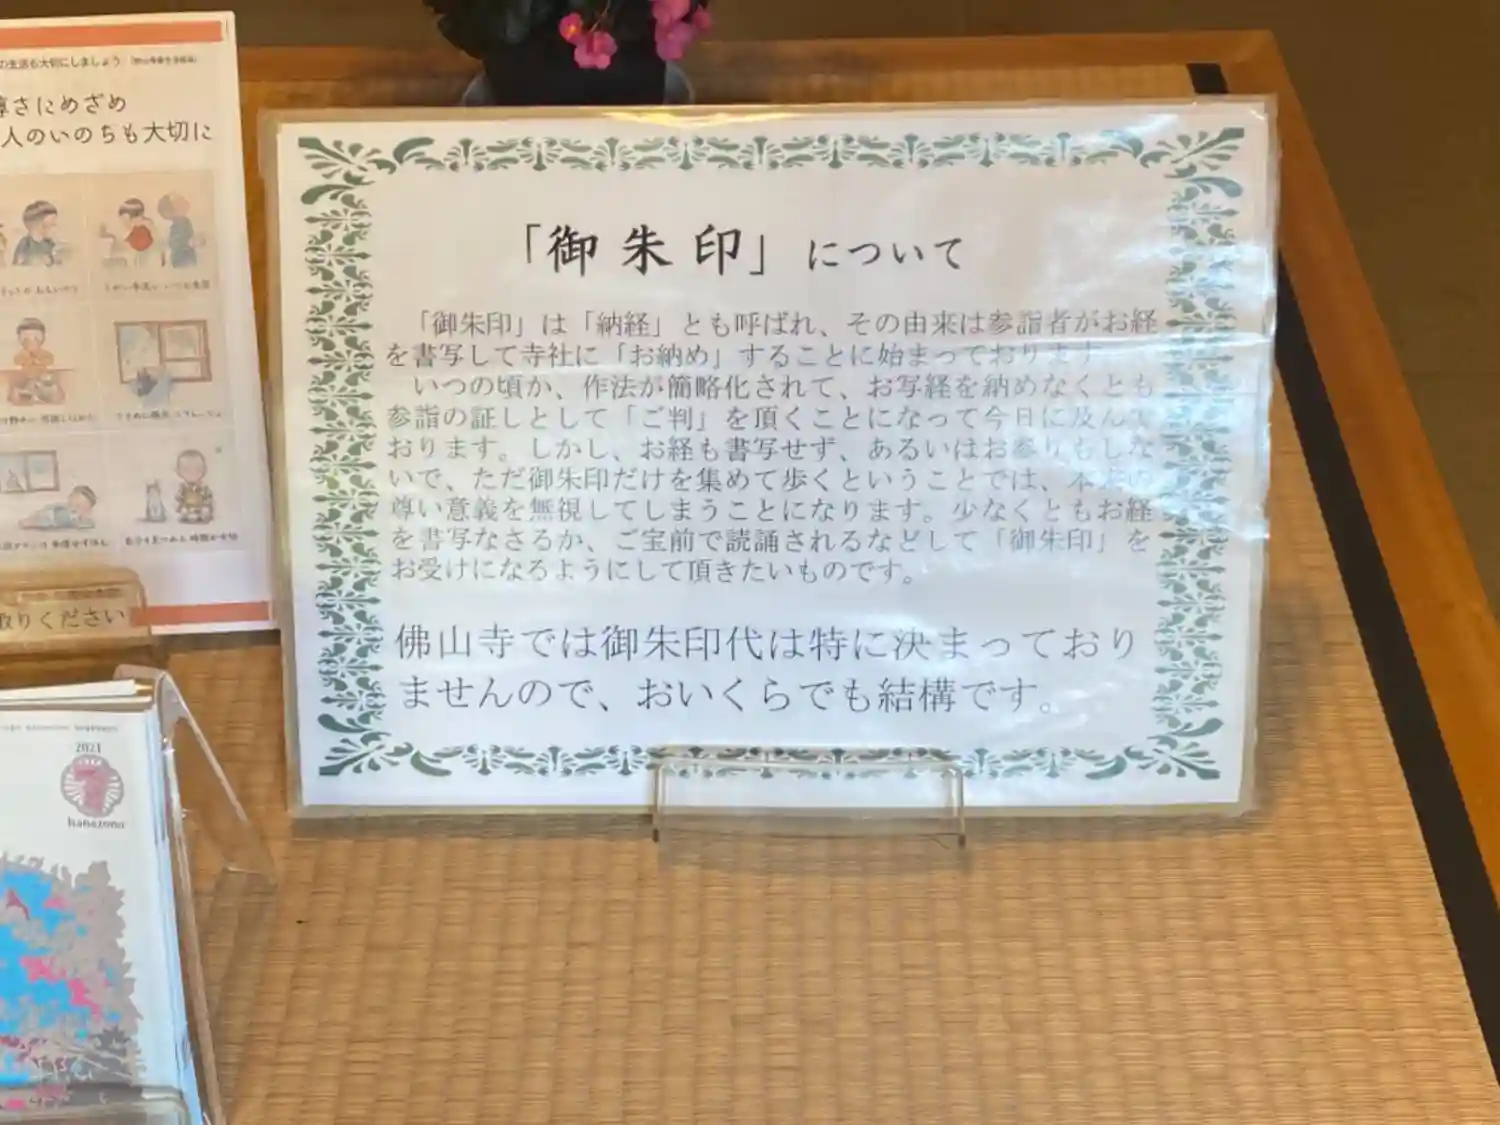 の生活も大切にしましょう
尊さにめざめ
人のいのちも大切に
取りください
2021
hanazono
「御朱印」について
「御朱印」は「納経」とも呼ばれ、その由来は参詣者がお経
を書写して寺社に「お納め」することに始まっております
いつの頃か、作法が簡略化されて、お写経を納めなくとも
参詣の証しとして「ご判」を頂くことになって今日に及んで
おります。しかし、お経も書写せず、あるいはお参りもしな
いで、ただ御朱印だけを集めて歩くということでは、本来の
尊い意義を無視してしまうことになります。少なくともお経
を書写なさるか、ご宝前で読誦されるなどして「御朱印」を
お受けになるようにして頂きたいものです。
佛山寺では御朱印代は特に決まっており
ませんので、おいくらでも結構です。